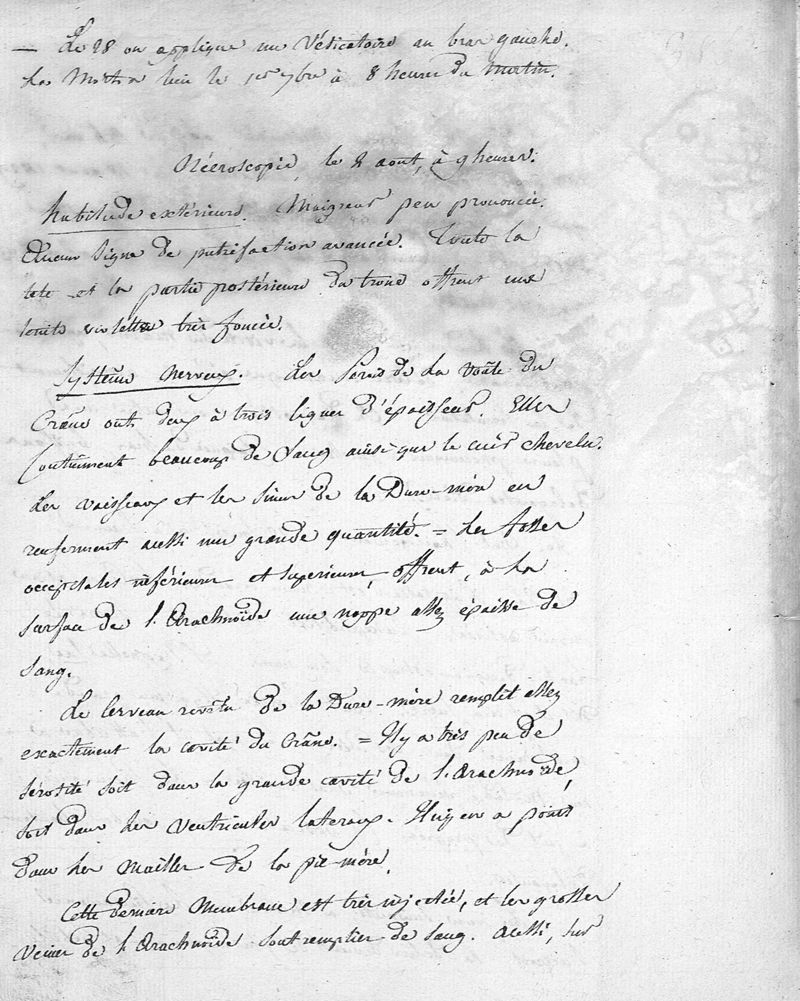 — Le 28 on applique un Vésicatoire au bras gauche.
La Mort a lieu le 1er 7bre à 8 heures du matin.
Nécroscopie, le 2 aout, à 9 heures.
habitude extérieure. Maigreur peu prononcée.
Aucun signe de putréfaction avancée. Toute la
tete et la partie postérieure du tronc offrent une
teinte violette très foncée.
Système nerveux. Les Parois de la Voûte du
Crâne ont deux à trois lignes d'épaisseur. Elles
Contiennent beaucoup de Sang ainsi que le cuir chevelu.
Les vaisseaux et les sinus de la Dure-mère en
renferment aussi une grande quantité. = Les fosses
occipitales inférieures et supérieures, offrent, à la
surface de l'Arachnoïde une nappe assez épaisse de
sang.
Le Cerveau revêtu de la Dure-mère remplit assez
exactement la cavité du Crâne. = Il y a très peu de
sérosité soit dans la grande cavité de l'Arachnoïde,
soit dans les Ventricules lateraux. Il n'y en a point
dans les Mailles de la pie-mère.
Cette derniere Membrane est très injectée, et les grosses
veines de l'Arachnoïde sont remplies de sang. Aussi, sur